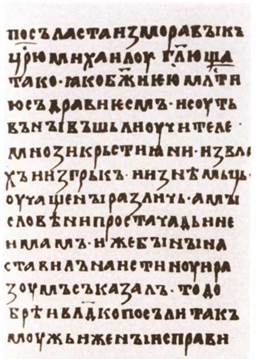 посъластаизморавꙑкъ
цр҃юмихаилоу гл҃юща
тако·ꙗкобж҃иѥюмлⷭ҇ти
юсъдравиѥсмъ·исоуть
вънꙑвъшьлиоучителе
мнозикрьстиꙗни·извла
хъиизгрькъ·иизнѣмьць·
оучащенꙑразличь·амꙑ
словѣнипростачадьине
имамъ·ижебꙑнꙑна
ставилънаистиноуира
зоумъсъказалъ·тодо
брѣивлⷣкопосълитакъ
моужьиженꙑисправи